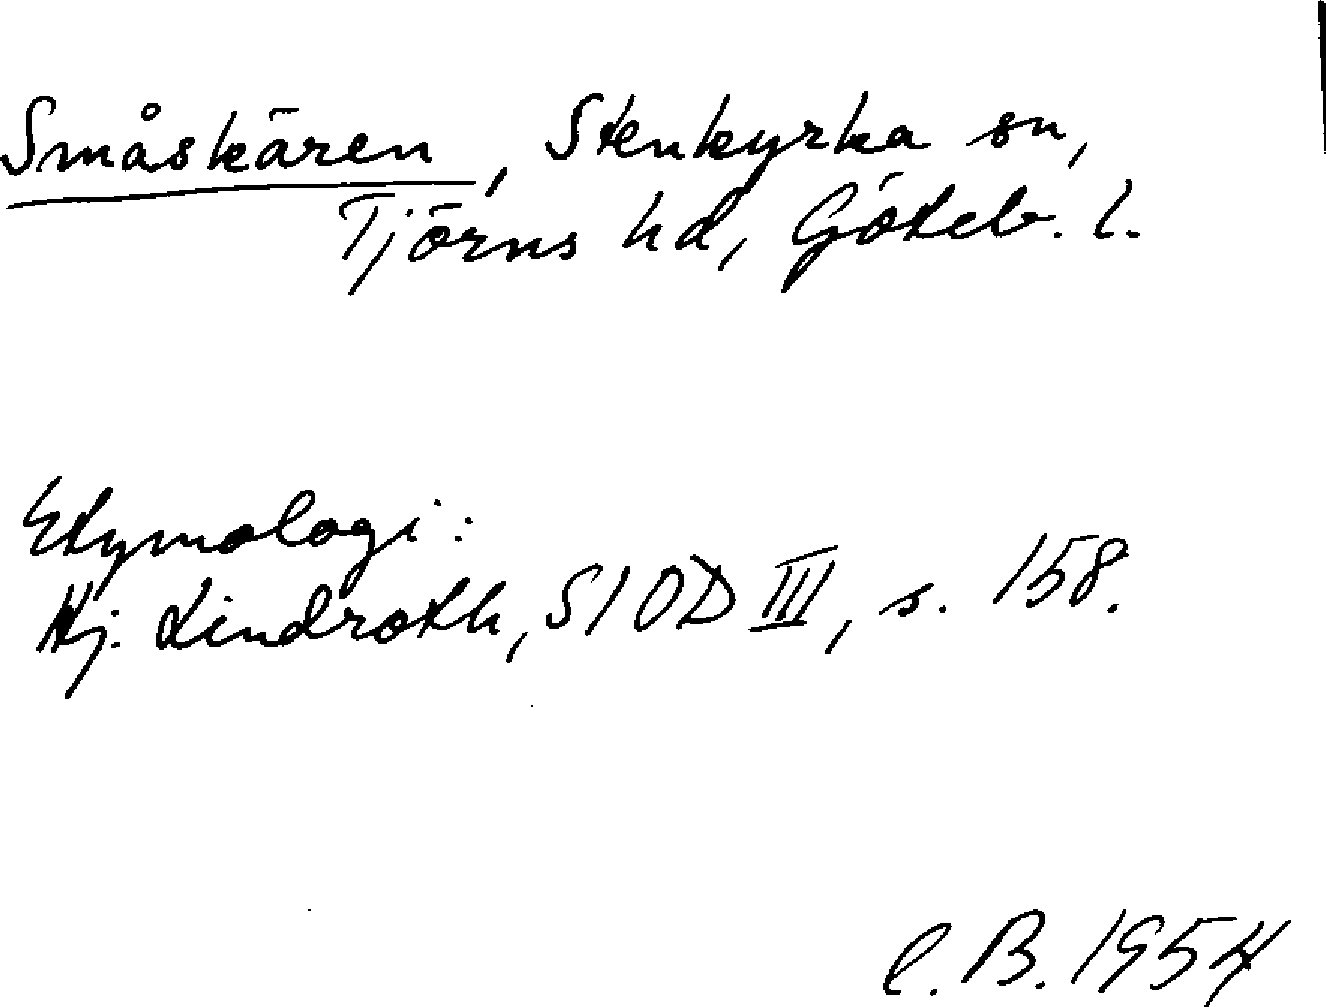 Småskären, Stenkyrka sn,
Tjörns hd, Göteb. l.
Etymologi:
Hj. Lindroth, SIOD III, s. 158.
C. B. 1954